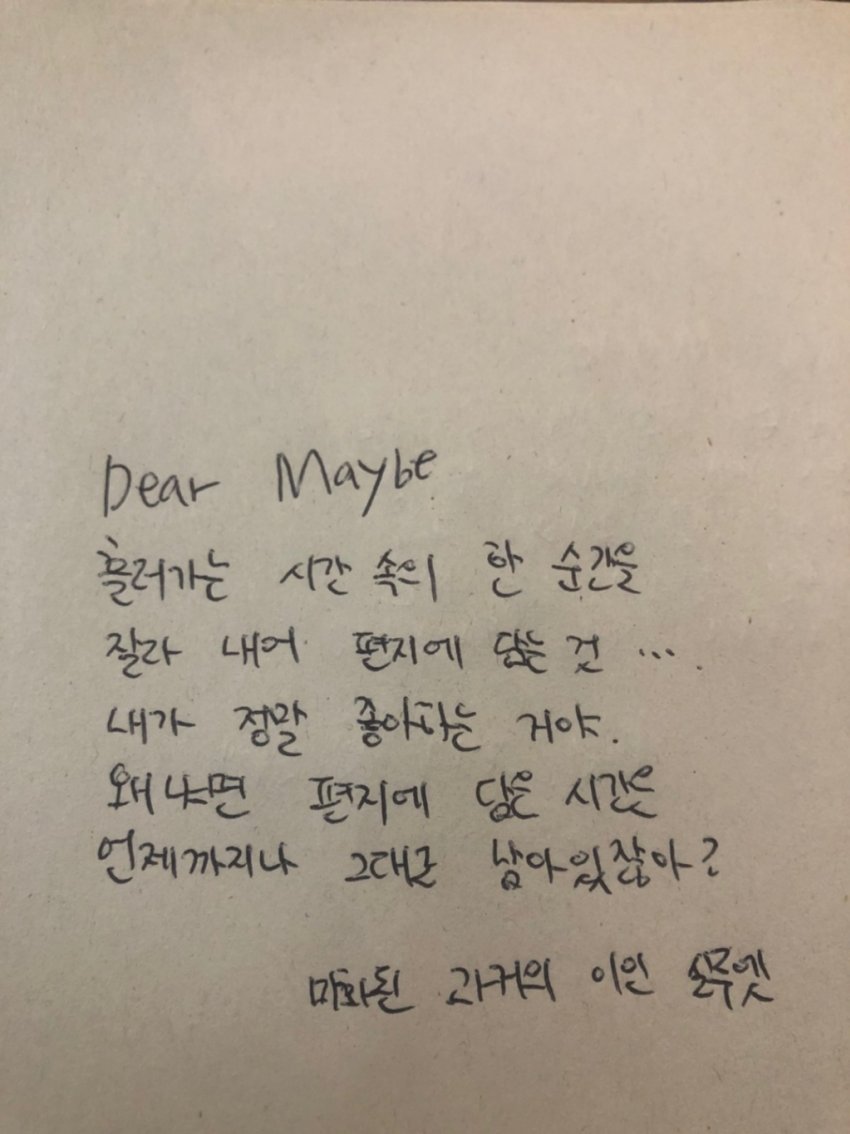 Dear Maybe
흘러가는 시간 속의 한 순간을
잘라 내어 편지에 담는 것 ....
내가 정말 좋아하는 거야.
왜냐면 편지에 담은 시간은
언제까지나 그대로 남아있잖아?
미화된 과거의 이인 실루엣